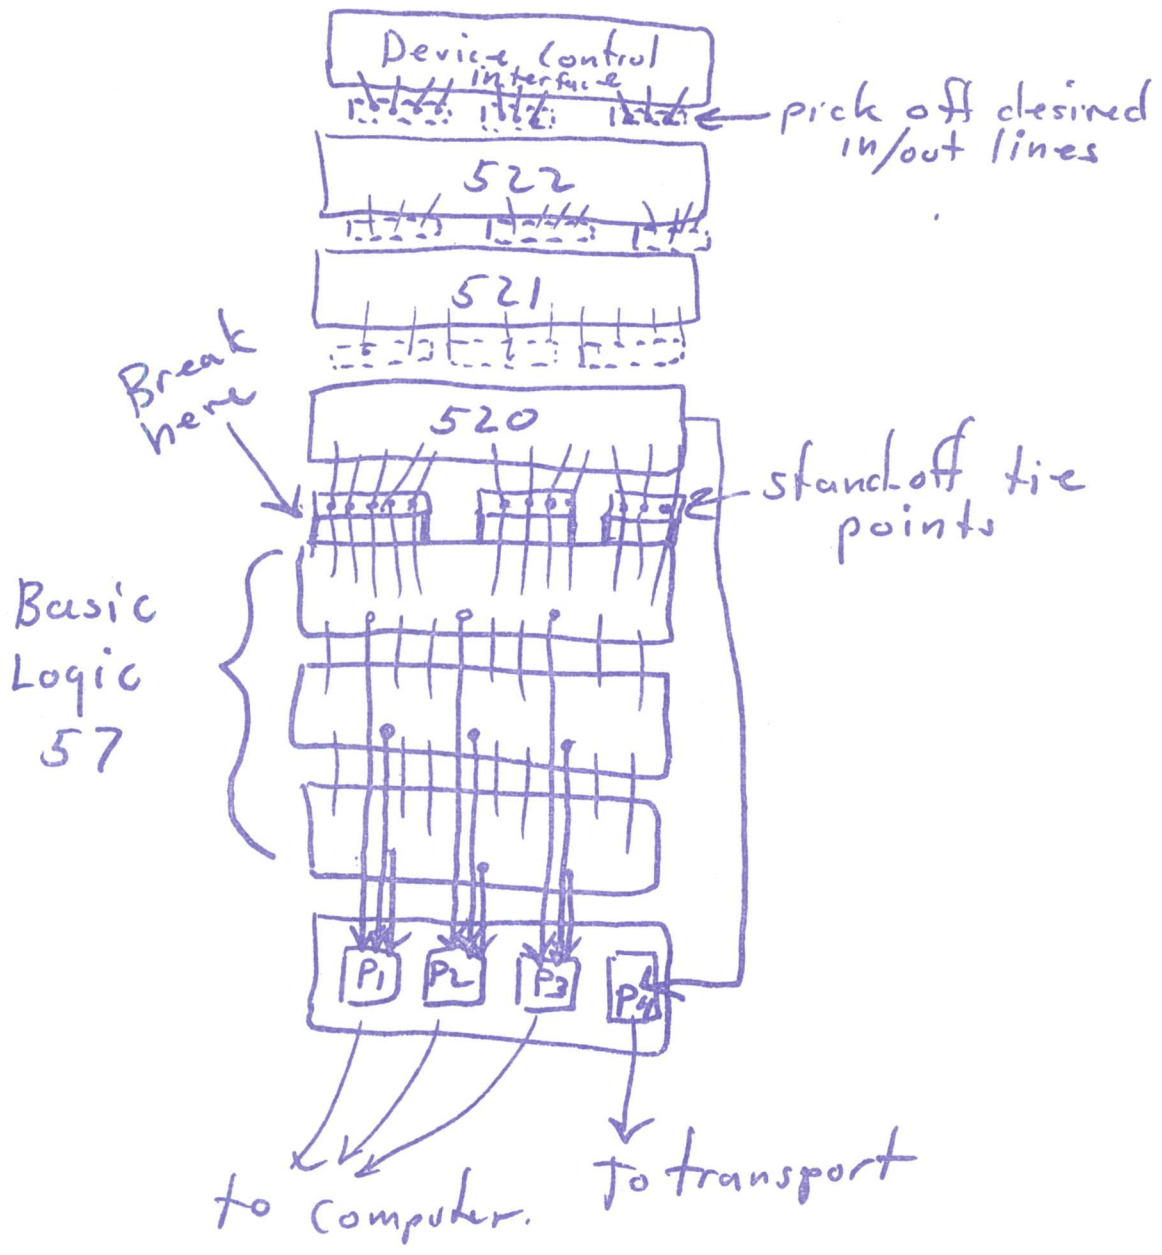 Device Control
interface
pick off desired
in/out lines
522
521
Break
here
520
standoff tie
points
Basic
Logic
57
P1 P2 P3 P4
to computer.
To transport